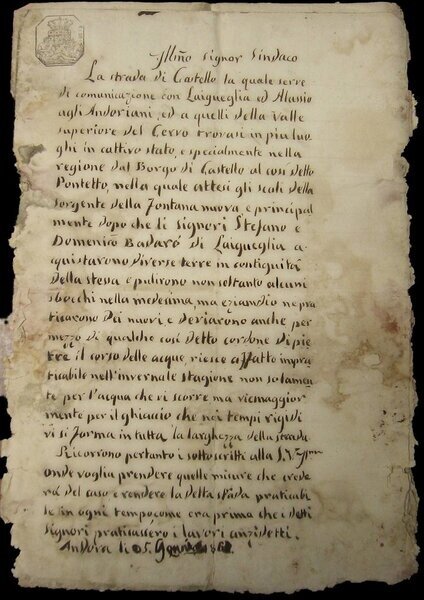 Illmo Signor Sindaco
La strada di Castello la quale serve
di comunicazione con Laigueglia ed Alassio
agli Andoriani, ed a quelli della Valle
superiore del Cervo trovasi in più luo
ghi in cattivo stato, e specialmente nella
regione dal Borgo di Castello al così detto
Pontetto, nella quale attesi gli scoli della
sorgente della Fontana nuova e principal
mente dopo che li Signori Stefano e
Domenico Badarò di Laigueglia a-
quistarono diverse terre in contiguità
della stessa e pulirono non soltanto alcuni
sbocchi nella medesima, ma eziandio ne pra
ticarono dei nuovi e deviarono anche per
mezzo di qualche così detto cordone di pie
tre il corso delle acque, riesce affatto impra
ticabile nell'invernale stagione non solamen
te per l'acqua che vi scorre ma viemaggior
mente per il ghiaccio che nei tempi rigidi
vi si forma in tutta la larghezza della strada
Ricorrono pertanto i sottoscritti alla S.V.
onde voglia prendere quelle misure che crede
rà del caso e rendere la detta strada praticabi
le in ogni tempo come era prima che i detti
Signori praticassero i lavori anzidetti.
Andora li 5